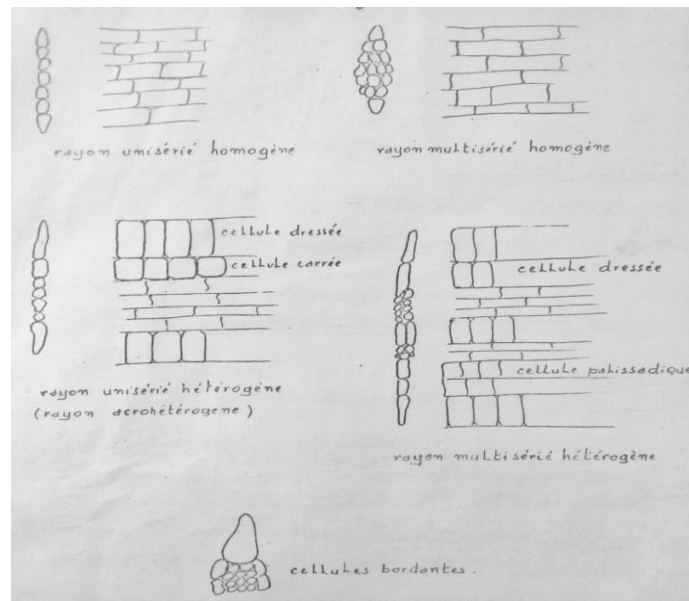 rayon unisérié homogène
rayon multisérié homogène
cellule dressée
cellule carrée
rayon unisérié hétérogène
(rayon acrohétérogene)
cellule dressée
cellule palissadique
rayon multisérié hétérogène
cellules bordantes.